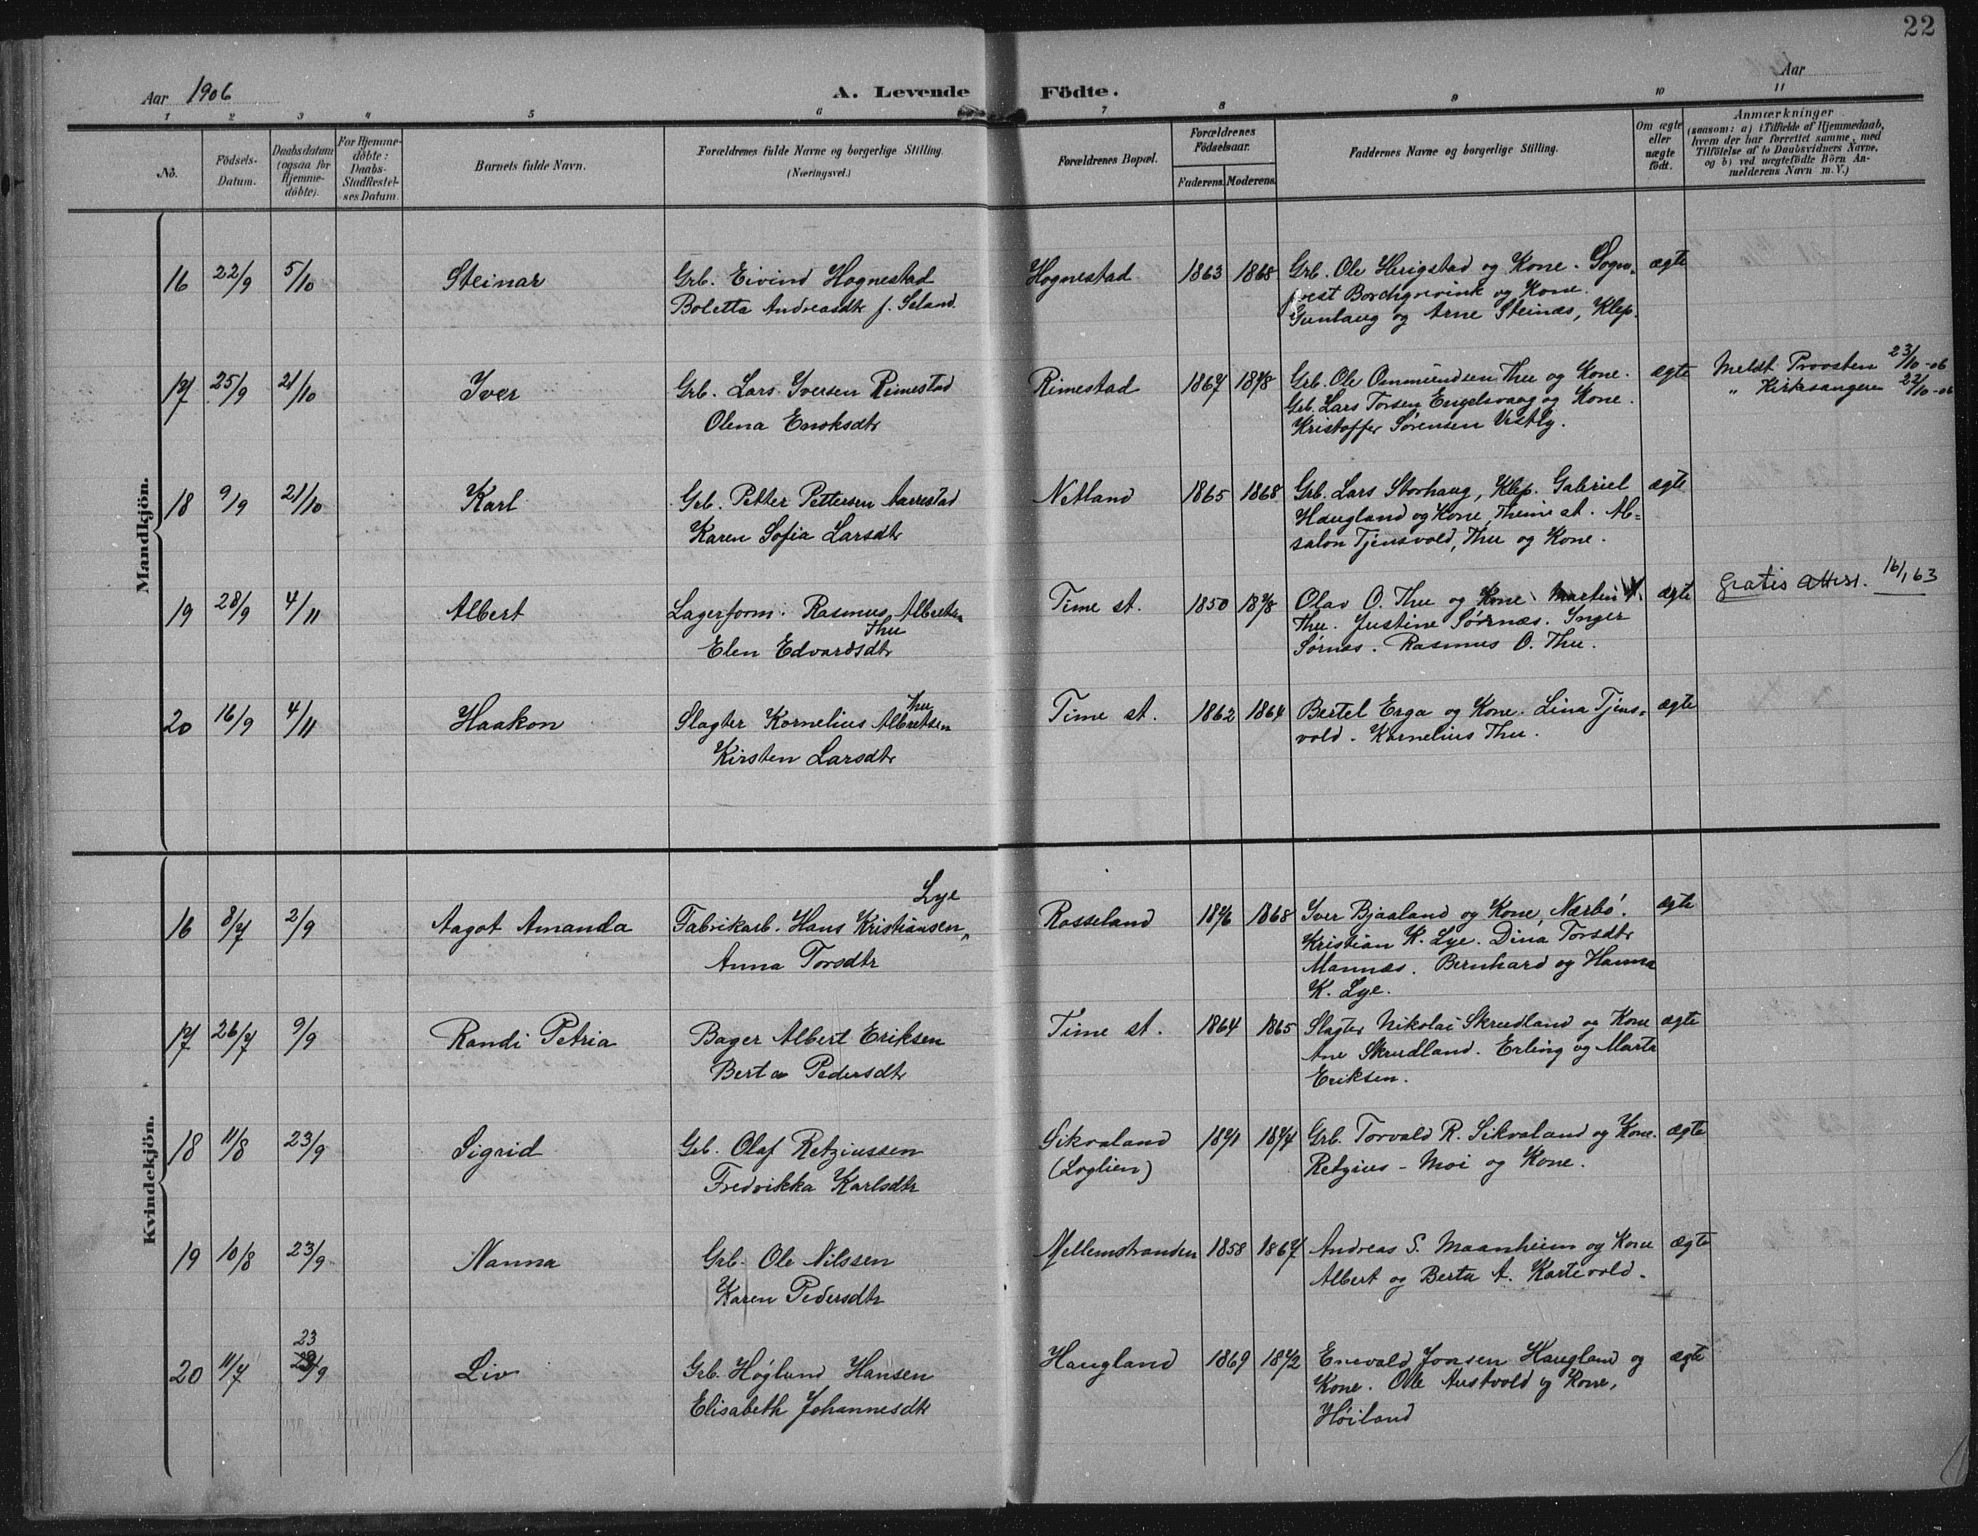 22
Aar 1906 A. Levende Födte. Aar
1 2 3 4 5 6 7 8 9 10 11
No. Födsels-Datum. Daabsdatum (ogsaa for Hjemmedöbte). For Hjemmedöbte: Daabs-Stadfæstelses Datum Barnets fulde Navn. Forældrenes fulde Navne og borgerlige Stilling. (Næringsvei.) Forældrenes Bopæl. Forældrenes eller Födselsaar. Faderens. Moderens. Faddernes Navne og borgerlige Stilling. Om ægte eller uægte födt. Anmærkninger (saasom: a) i Tilfælde af Hjemmedaab, hvem der har forrettet samme, med Tilföielse af to Daabsvidners Navne, og b) ved uægtefödte Börn Anmelderens Navn m. V.)
Mandkjön.
16 22/9 5/10 Steinar Grb. Eivind Hognestad Hognestad 1863 1868 Grb. Ole Herigstad og Kone. Sogne- ægte
Boletta Andreasdtr f. Seland. prest Borchgrevink og Kone.
Gunlaug og Arne Steinæs, Klep.
17 25/9 21/10 Iver Grb. Lars Iversen Rimestad Rimestad 1867 1878 Grb. Ole Ommundsen Thu og Kone. ægte Meldt Provsten 23/10-06
Olena Enoksdtr Grb. Lars Torsen Engelsvaag og Kone. " Kirksangeren 22/10-06
Kristoffer Sørensen Vestly.
18 9/9 21/10 Karl Grb. Petter Pettersen Aarrestad Netland 1865 1868 Grb. Lars Storhaug, Klep. Gabriel ægte
Karen Sofia Larsdtr Haugland og Kone, Theime st. Ab=
salon Tjensvold, Thu og Kone.
19 28/9 4/11 Albert Lagerform. Rasmus Albertsen Time st. 1850 1878 Olav O. Thu og Kone. Martin A. ægte Gratis attest. 16/1 63
Thu Thu. Justine Sørnæs. Inger
Elen Edvardsdtr Sørnæs. Rasmus O. Thu.
20 16/9 4/11 Haakon Slagter Kornelius Albretsen Time st. 1862 1864 Bertel Erga og Kone. Lina Tjens- ægte
Thu vold. Kornelius Thu.
Kirsten Larsdtr
Kvindekjön.
16 8/7 2/9 Aagot Amanda Fabrikarb. Hans Kristiansen Rosseland 1876 1868 Iver Bjaaland og Kone, Nærbø. ægte
Lye Kristian K. Lye. Dina Torsdtr
Anna Torsdtr Mannæs. Bernhard og Hanna
K. Lye.
17 26/7 9/9 Randi Petria Bager Albert Eriksen Time st. 1864 1865 Slagter Nikolai Skrudland og Kone ægte
Berta Pedersdtr Ane Skrudland. Erling og Marta
Eriksen.
18 11/8 23/9 Sigrid Grb. Olaf Retziussen Sikvaland 1871 1874 Grb. Torvald R. Sikvaland og Kone. ægte
Fredrikka Karlsdtr (Loglien) Retzius - Moi og Kone.
19 10/8 23/9 Nanna Grb. Ole Nilssen Mellemstranden 1858 1867 Andreas S. Maanheim og Kone ægte
Karen Pedersdtr Albert og Berta A. Kartevold.
23
20 11/7 23/9 Liv Grb. Høglund Hansen Haugland 1869 1872 Enevald Jonsen Haugland og ægte
Elisabeth Johannesdtr Kone. Ole Austvold og Kone,
Høiland